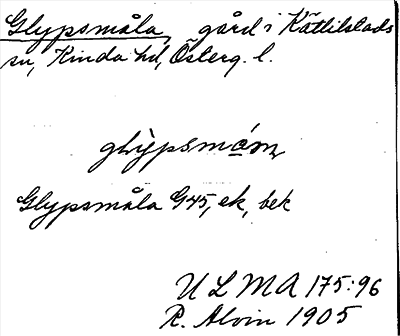 Glypsmåla, gård i Kättilstads
sn, Kinda hd, Österg. l.
Glypsmåla G45, ek, bek
ULMA 175:96
R. Alvin 1905